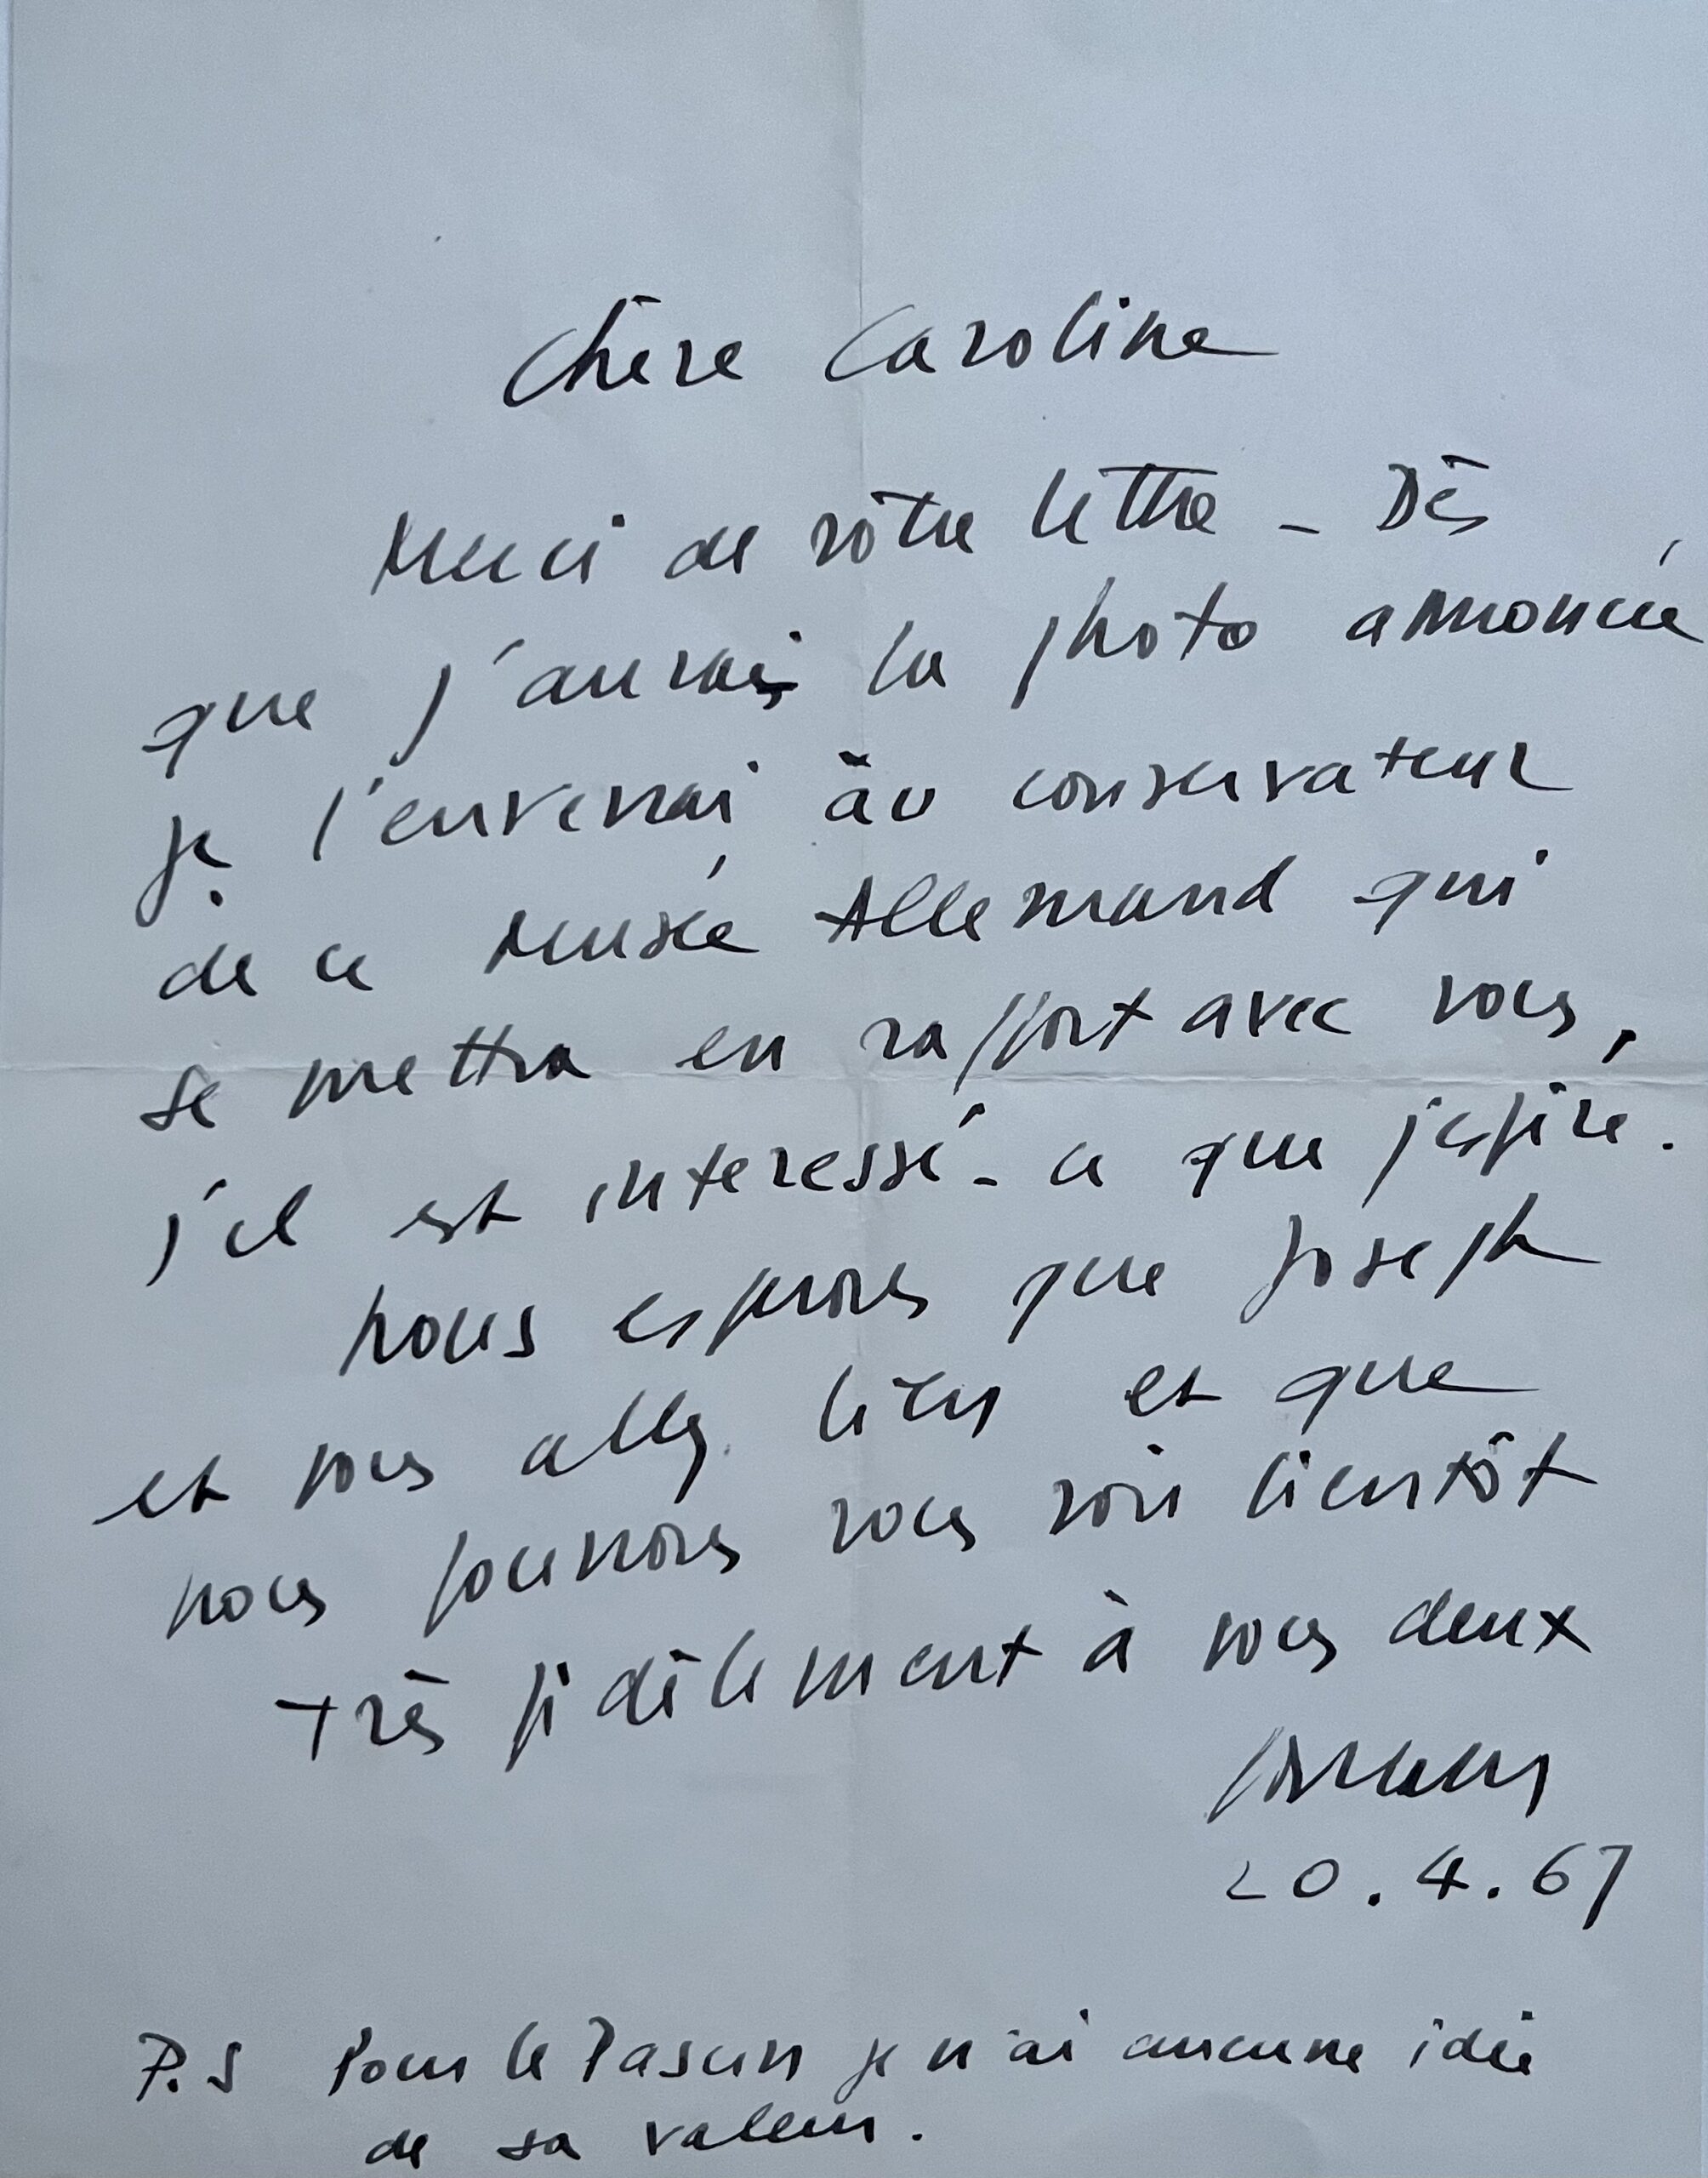 Chère Caroline
Merci de vôtre lettre - Dès
que j'aurais la photo annoncée
je l'enverrai au conservateur
de ce Musée Allemand qui
se mettra en rapport avec vous,
s'il est interessé - ce que j'espère.
Nous esperons que Joseph
et vous allez bien et que
nous pourrons vous voir bientôt
très fidèlement à vous deux
20.4.67
P.S Pour le Pascin je n'ai aucune idée
de sa valeur.